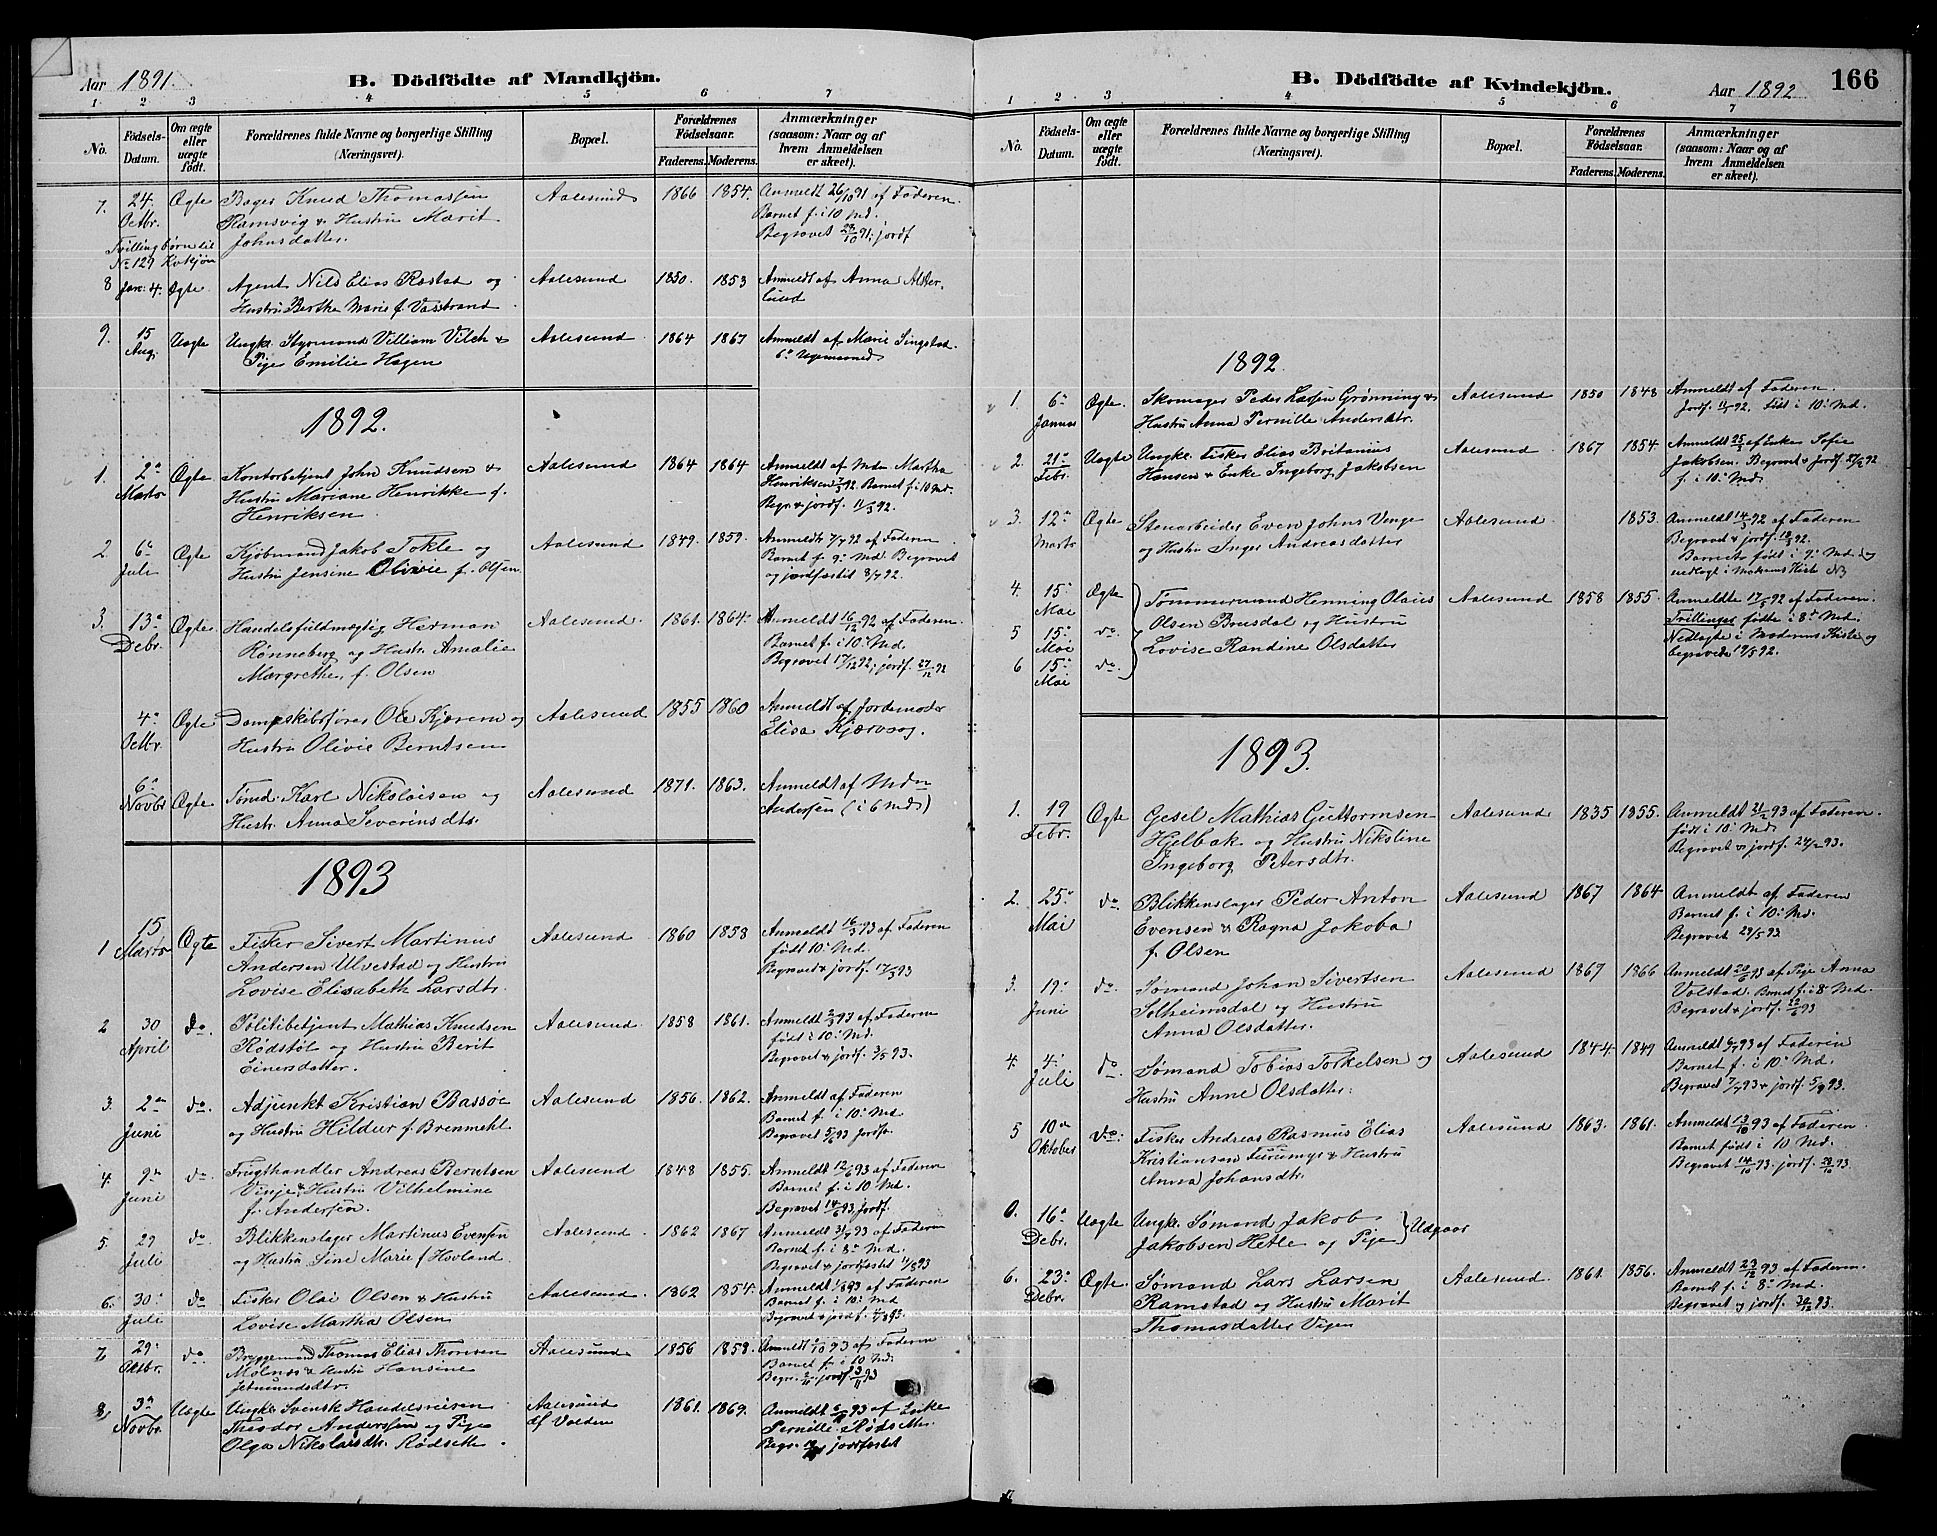 Aar 1891.
B. Dödfödte af Mandkjön.
1. 2 3 4 5 6 7
No.
Födsels-Datum.
Om ægte eller uægte födt.
Forældrenes fulde Navne og borgerlige Stilling (Næringsvei).
Bopæl.
Forældrenes Födselsaar.
Faderens. Moderens.
Anmærkninger (saasom: Naar og af hvem Anmeldelsen er skeet).
7. 24. Octbr. Ægte Bager Knud Thomassen Aalesund 1866 1854. Anmeldt 26/10 91 af Faderen.
Ramsvig & Hustru Marit Barnet f. i 10 Md.
Johnsdatter. Begravet 29/10 91; jordf
Tvillingbørn til
No 129 Kvkjøn
8 Jan: 4. Ægte Agent Nils Elias Rastad og Aalesund 1850. 1853 Anmeldt af Anna Alster-
Hustru Berthe Marie f. Vasstrand lund
9. 15 Aug. Uægte Ungk. Styrmand Villiam Vilch & Aalesund 1864 1867 Anmeldt af Marie Singstad
Pige Emilie Hagen
1892.
1. 2en Marts Ægte Kontorbetjent John Knudsen & Aalesund 1864 1864 Anmeldt af Mdm Martha
Hustru Mariane Henrikke f. Henriksen 7/3 92. Barnet f. i 10 Md.
Henriksen Begr. & jordf. 11/3 92.
2. 6te Juli Ægte Kjøbmand Jakob Tokle og Aalesund 1849. 1859. Anmeldt 7/7 92 af Faderen
Hustru Jensine Olivie f. Olsen Barnet f. 9de Md. Begravet
og jordfæstet 8/7 92.
3. 13de Debr. Ægte Handelsfuldmægtig Herman Aalesund. 1861. 1864. Anmeldt 16/12 92 af Faderen.
Rønneberg og Hustr. Amalie Barnet f. i 10: Md.
Margrethe f. Olsen Begravet 17/12 92, jordf. 27/12 92
4de Octbr. Ægte Dampskibsfører Ole Kjærem og Aalesund 1855 1860 Anmeldt af Jordemoder
Hustru Olivie Berntsen Elisa Kjærvaag.
6te Novbr Ægte Tømd. Karl Nikolaisen og Aalesund 1871. 1863. Anmeldt af Mdm
Hustr. Anna Severinsdtr. Andersen (i 6 Md)
1893
1 15 Marts Ægte Fisker Sivert Martinus Aalesund 1860 1858 Anmeldt 16/3 93 af Faderen
Andersen Ulvestad og Hustru født 10: Md.
Lovise Elisabeth Larsdtr. Begravet & jordf. 17/3 93
2 30 April do. Politibetjent Mathias Knudsen Aalesund. 1858 1861. Anmeldt 2/5 93 af Faderen
Rødstøl og Hustru Berit født i 10: Md.
Einersdatter. Begravet & jordf. 3/5 93.
3. 2en Juni do. Adjunkt Kristian Bassøe Aalesund 1856. 1862. Anmeldt af Faderen
og Hustru Hildur f. Brenmehl Barnet f. i 10: Md.
Begravet 5/6 93 jordfs.
4. 9de Juni do. Frugthandler Andreas Berntsen Aalesund 1848 1855. Anmeldt 12/6 93 af Faderen
Vinje & Hustru Vilhelmine Barnet f. i 10 Md.
f. Andersen. Begravet 14/6 93 jordf.
5. 29 Juli do. Blikkenslager Martinus Evensen Aalesund 1862 1867 Anmeldt 31/7 93 af Faderen
og Hustru Sine Marie f Hovland. Barnet f. i 8de Md.
Begravet & jordfæstet 1/8 93
6. 30. Juli do Fisker Olai Olsen & Hustru Aalesund. 1862 1854. Anmeldt 1/8 93 af Faderen
Lovise Martha Olsen Barnet f. i 10: Md
Begravet & jordf. 4/8 93.
7 29: Oktbr. do. Bryggemand Thomas Elias Thoresen Aalesund 1856 1858. Anmeldt 93 af Faderen
Molnæs & Hustru Hansine Barnet f. i 10 Md.
Jetmundsdtr. Begr. jordf 93
8. 3die Novbr. Uægte Ungk. Svensk Handelsreisen Aalesund 1861. 1869. Anmeldt 6/11 93 af Enke
Theodor Anderssen og Pige df Volden Pernille Rødsetter.
Olga Nikolaisdtr. Rødseth. Begr. jordfæstet
B. Dödfödte af Kvindekjön.
Aar 1892
166
1 2 3 4 5 6 7
No.
Födsels-Datum.
Om ægte eller uægte födt.
Forældrenes fulde Navne og borgerlige Stilling (Næringsvei).
Bopæl.
Forældrenes Födselsaar.
Faderens. Moderens.
Anmærkninger (saasom: Naar og af hvem Anmeldelsen er skeet).
1892.
1. 6te Januar Ægte. Skomager Peder Larsen Grønning & Aalesund 1850 1848 Anmeldt af Faderen.
Hustru Anna Pernille Andersdtr. Jordf. 11/1 92. Født i 10: Md.
2. 21de Febr. Uægte Ungk. Fisker Elias Britanius Aalesund 1867 1854. Anmeldt 25/2 af Enke Sofie
Hansen & Enke Ingeborg Jakobsen Jakobsen. Begravet & jordf. 27/2 92
f. i 10: Md.
3. 12te Marts Ægte Stenarbeider Even Johns Venge Aalesund. 1853. Anmeldt 14/3 92 af Faderen
og Hustru Inger Andreasdatter Begravet & jordf. 18/3 92.
Barnet født i 9: Md. og
nedlagt i Moderens Kiste
4. 15de Mai Ægte Tømmermand Henning Olaus Aalesund 1858 1855. Anmeldte 17/5 92 af Faderen
5 15de Mai do. Olsen Brusdal og Hustru Trillinger fødte i 8de Md.
6 15de Mai do. Lovise Randine Olsdatter Nedlagte i Moderens Kiste og
begravede 19/5 92.
1893.
1. 19 Febr. Ægte Gjesel Mathias Guttormsen Aalesund. 1835 1855. Anmeldt 21/2 93 af Faderen.
Hjelbak og Hustru Nikoline født i 10: Md.
Ingeborg Petersdtr. Begravet & jordf. 24/2 93.
2. 25de Mai do. Blikkenslager Peder Anton Aalesund 1867 1864 Anmeldt af Faderen
Evensen & Ragna Jakoba Barnet f. i 10: Md.
f. Olsen Begravet 29/5 93
3. 19: Juni do. Sømand Johan Sivertsen Aalesund 1867 1866 Anmeldt 20/6 93 af Pige Anna
Solheimsdal og Hustru Volstad. Barnet f. i 8de Md.
Anna Olsdatter. Begravet & jordf. 22/6 93
4. 4: Juli do. Sømand Tobias Torkelsen og Aalesund 1844. 1849 Anmeldt 6/7 93 af Faderen
Hustru Anne Olsdatter. Barnet f. i 10: Md.
Begravet 7/7 93 & jordf. 5/9 93.
5 10de Oktober do. Fisker Andreas Rasmus Elias Aalesund 1863. 1861. Anmeldt 13/10 93 af Faderen.
Kristiansen Furumyr & Hustru Barnet født i 10 Md.
Anna Johansdtr. Begravet 14/10 93. jordf. 28/10 93.
0. 16de Debr. Uægte Ungk. Sømand Jakob Udgaar
Jakobsen Hetle og Pige
6. 23de Debr. Ægte. Sømand Lars Larsen Aalesund. 1861. 1856. Anmeldt 23/12 93 af Faderen
Ramstad og Hustru Marit Barnet f. i 8de Md.
Thomasdatter Vigen Begravet og jordf. 30/12 93.